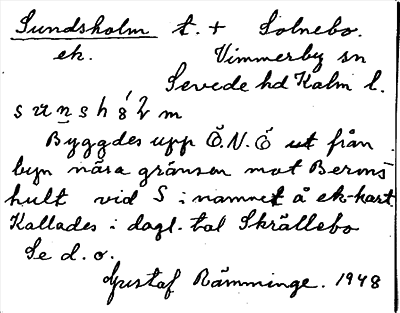 Sundsholm t. + Solnebo.
ek. Vimmerby sn
Sevede hd Kalm l.
Byggdes upp Ö.N.Ö ut från
byn nära gränsen mot Berøns-
hult vid S i namnet å ek-kart
Kallades i dagl. tal Skrällebo
Se d. o.
Gustaf Rämminge. 1948